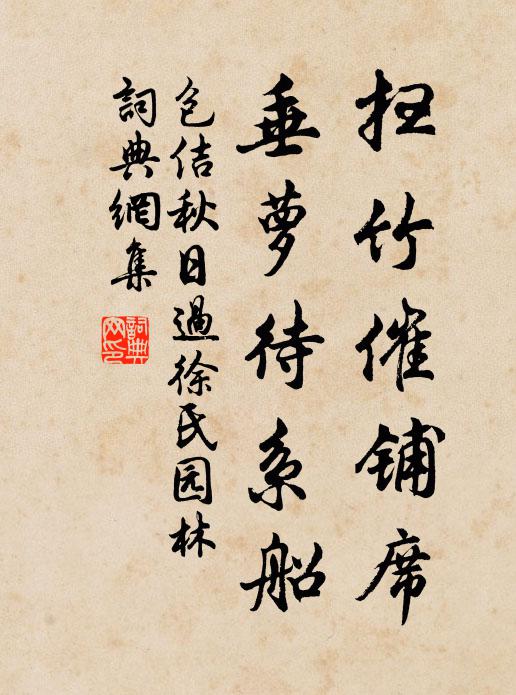 扫竹催铺席
垂萝待系船
包佶秋日過徐氏园林
詞典網集
詞典網印